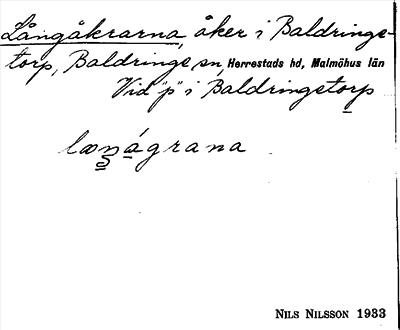 Långåkrarna, åker i Baldrings-
torp, Baldringe sn, Herrestads hd, Malmöhus län
Vid "p" i Baldringstorp
læŋágrana
NILS NILSSON 1933